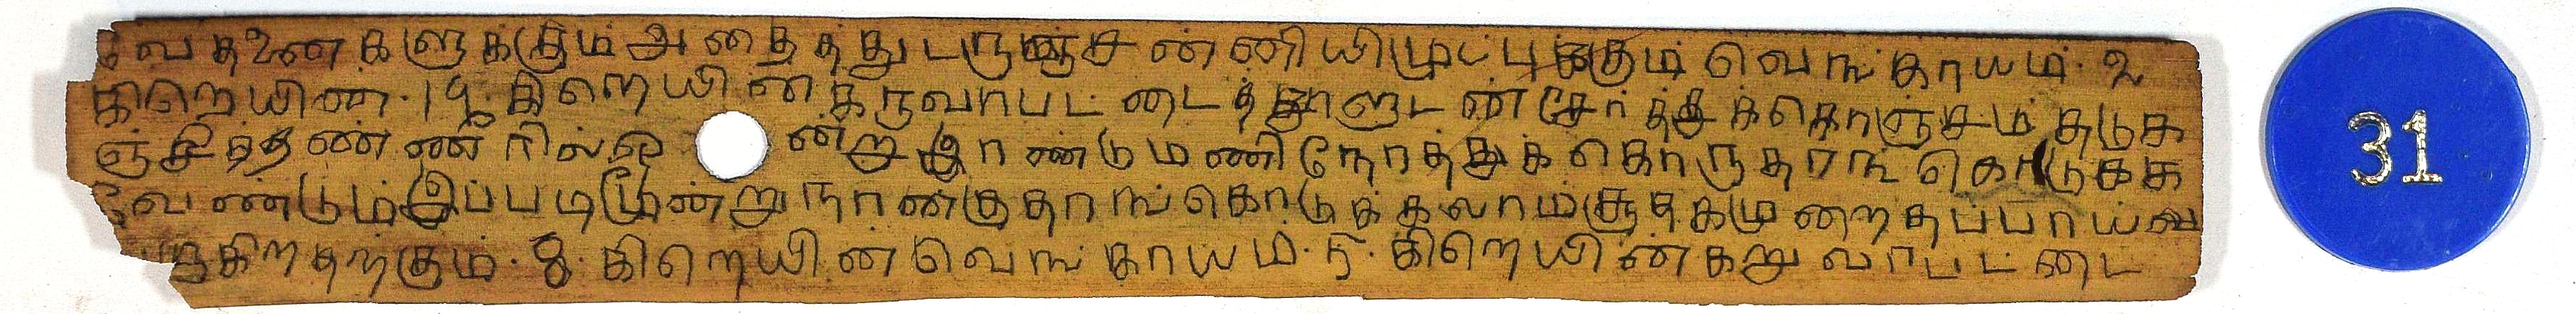 வேதனைகளுக்கும் அதைத்து பருஞ்சன்னியிழுப்புக்கும் வெங்காயம். ௨
கிறெயின். 1½ கிறெயின் கருவாபட்டைத்தூளுடன் சேர்த்துக்கொஞ்சம் சுடுக
ஞ்சித்தண்ணீரில் ஒன்று இரண்டு மணி நேரத்துக்கொருதரங் கொடுக்க
வேண்டும் இப்படி மூன்று நான்கு தரங் கொடுக்கலாம் சூதகமுறைதப்பாய் வ
ருகிறதற்கும். 8. கிறெயின் வெங்காயம். ௫. கிறெயின் கறுவாபட்டை
31